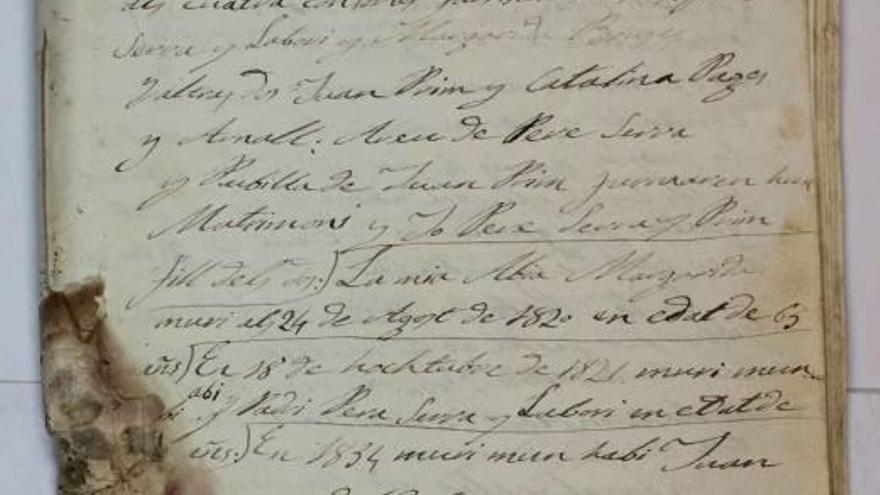 dels cuatra
Serra y Labori y Margarida Pages
Y altres dos Juan Prim y Catalina Pages
y Arnall. Areu de Pere Serra
y Pubilla de Juan Prim furmaren hun
Matrimoni y Jo Pere Serra y Prim
fill dels dos:) La mia Abia Margarida
muri els 24 de Agost de 1820 en edat de 63
añs) En 18 de hochtubre de 1821 muri mun
abi
y Padri Pera Serra y Labori en edat de
añs:) En 1834 muri mun habi Juan